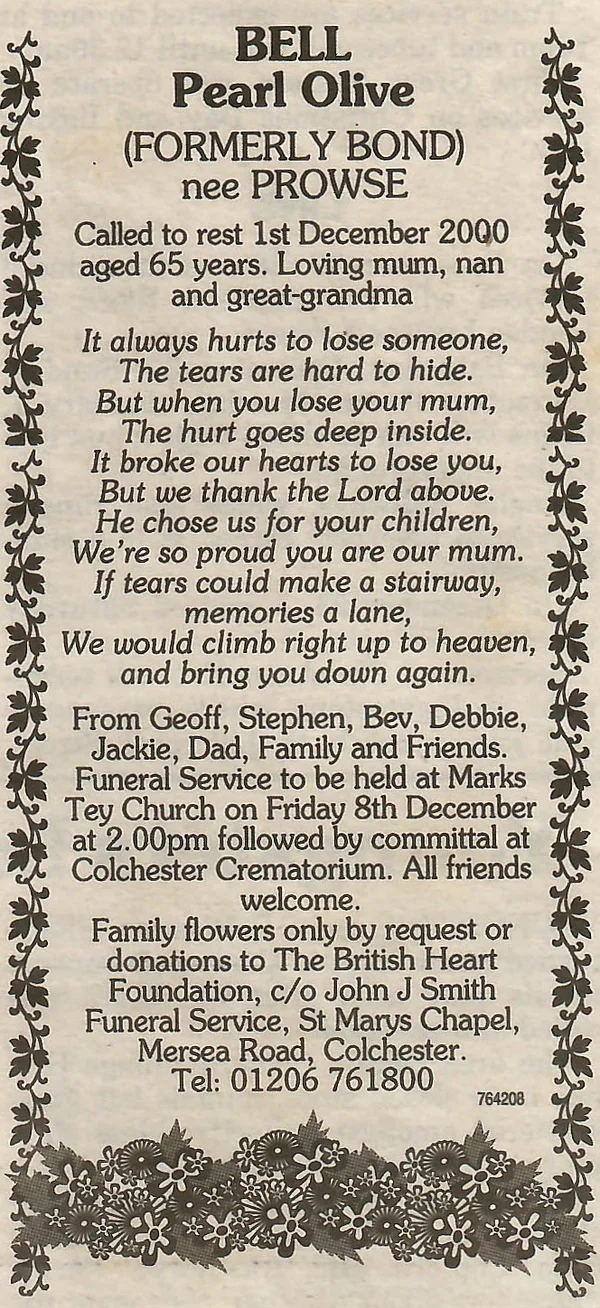 BELL
Pearl Olive
(FORMERLY BOND)
nee PROWSE
Called to rest 1st December 2000
aged 65 years. Loving mum, nan
and great-grandma
It always hurts to lose someone,
The tears are hard to hide.
But when you lose your mum,
The hurt goes deep inside.
It broke our hearts to lose you,
But we thank the Lord above.
He chose us for your children,
We're so proud you are our mum.
If tears could make a stairway,
memories a lane,
We would climb right up to heaven,
and bring you down again.
From Geoff, Stephen, Bev, Debbie,
Jackie, Dad, Family and Friends.
Funeral Service to be held at Marks
Tey Church on Friday 8th December
at 2.00pm followed by committal at
Colchester Crematorium. All friends
welcome.
Family flowers only by request or
donations to The British Heart
Foundation, c/o John J Smith
Funeral Service, St Marys Chapel,
Mersea Road, Colchester.
Tel: 01206 761800
764208